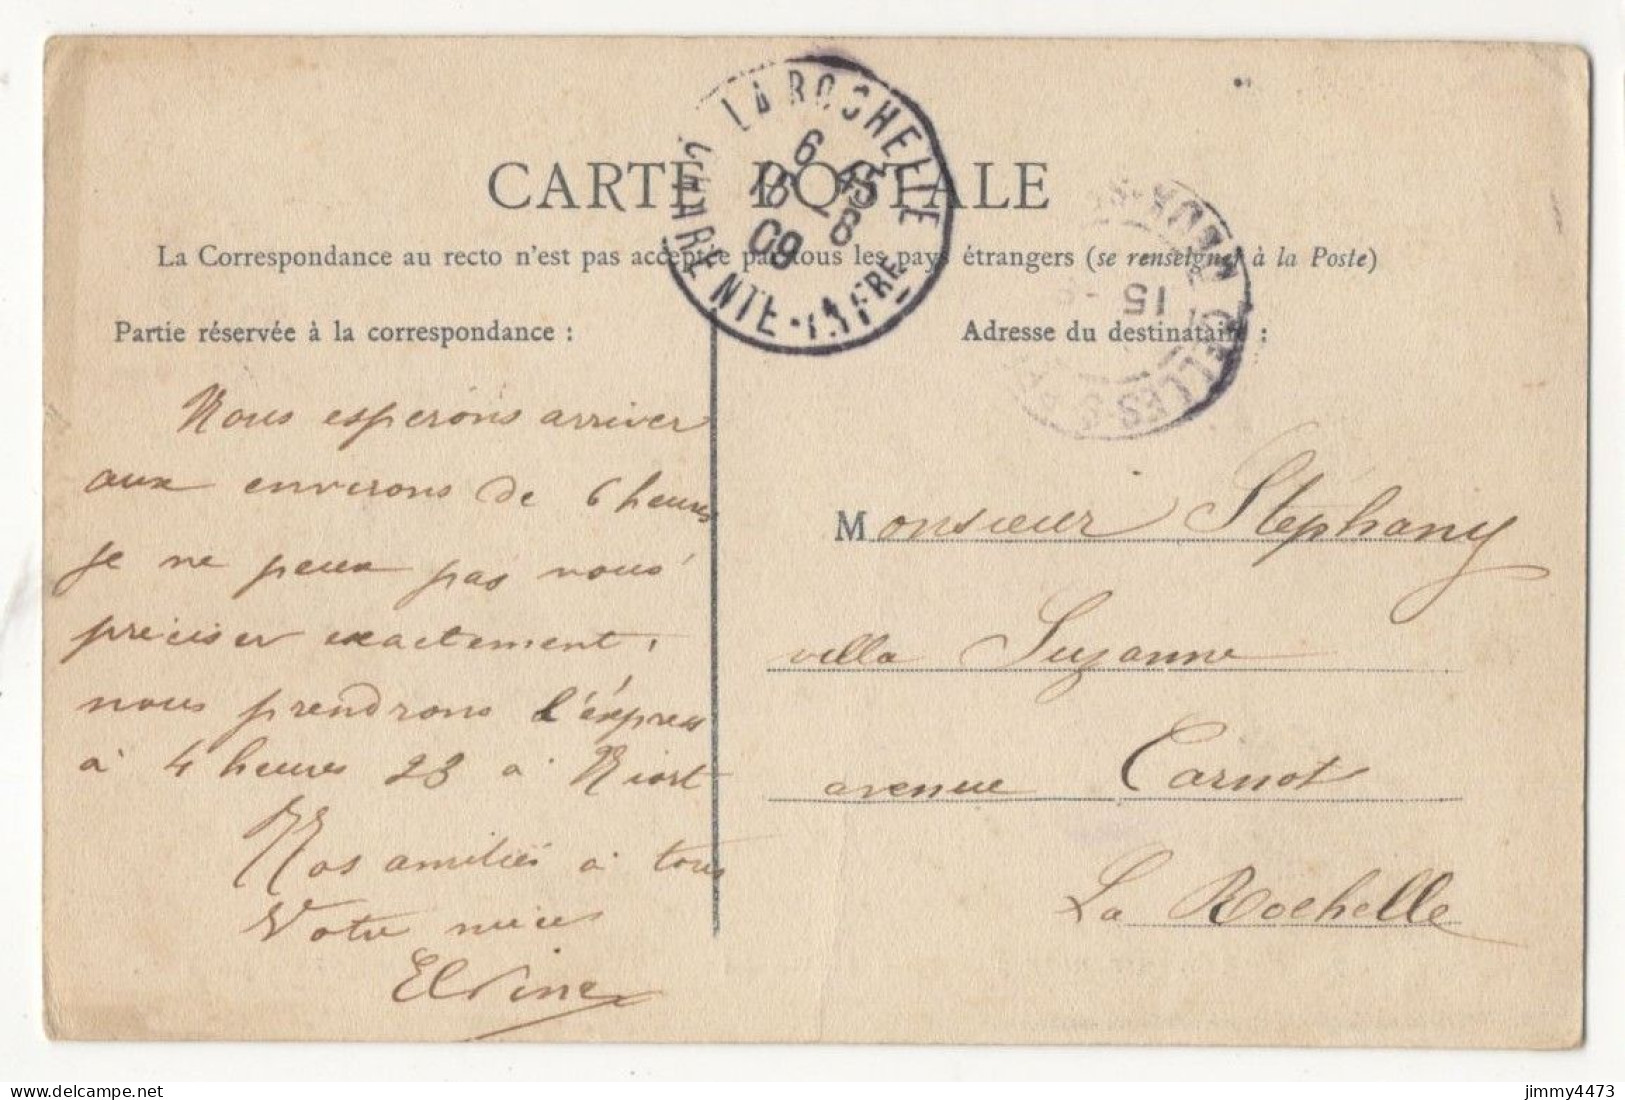 CARTE POSTALE
La Correspondance au recto n'est pas acceptée par tous les pays étrangers (se renseigner à la Poste)
Partie réservée à la correspondance :
Nous esperons arriver
aux environs de 6 heures
je ne peux pas vous
preciser exactement,
nous prendrons l'éxpress
à 4 heures 23 à Niort
Nos amitiés à tous
Votre niece
Elvine
Adresse du destinataire :
Monsieur Stéphany
villa Suzanne
avenue Carnot
La Rochelle
LA ROCHELLE
6 45
15 - 8
09
CHARENTE-INFRE
15
CELLES-S
jimmy4473